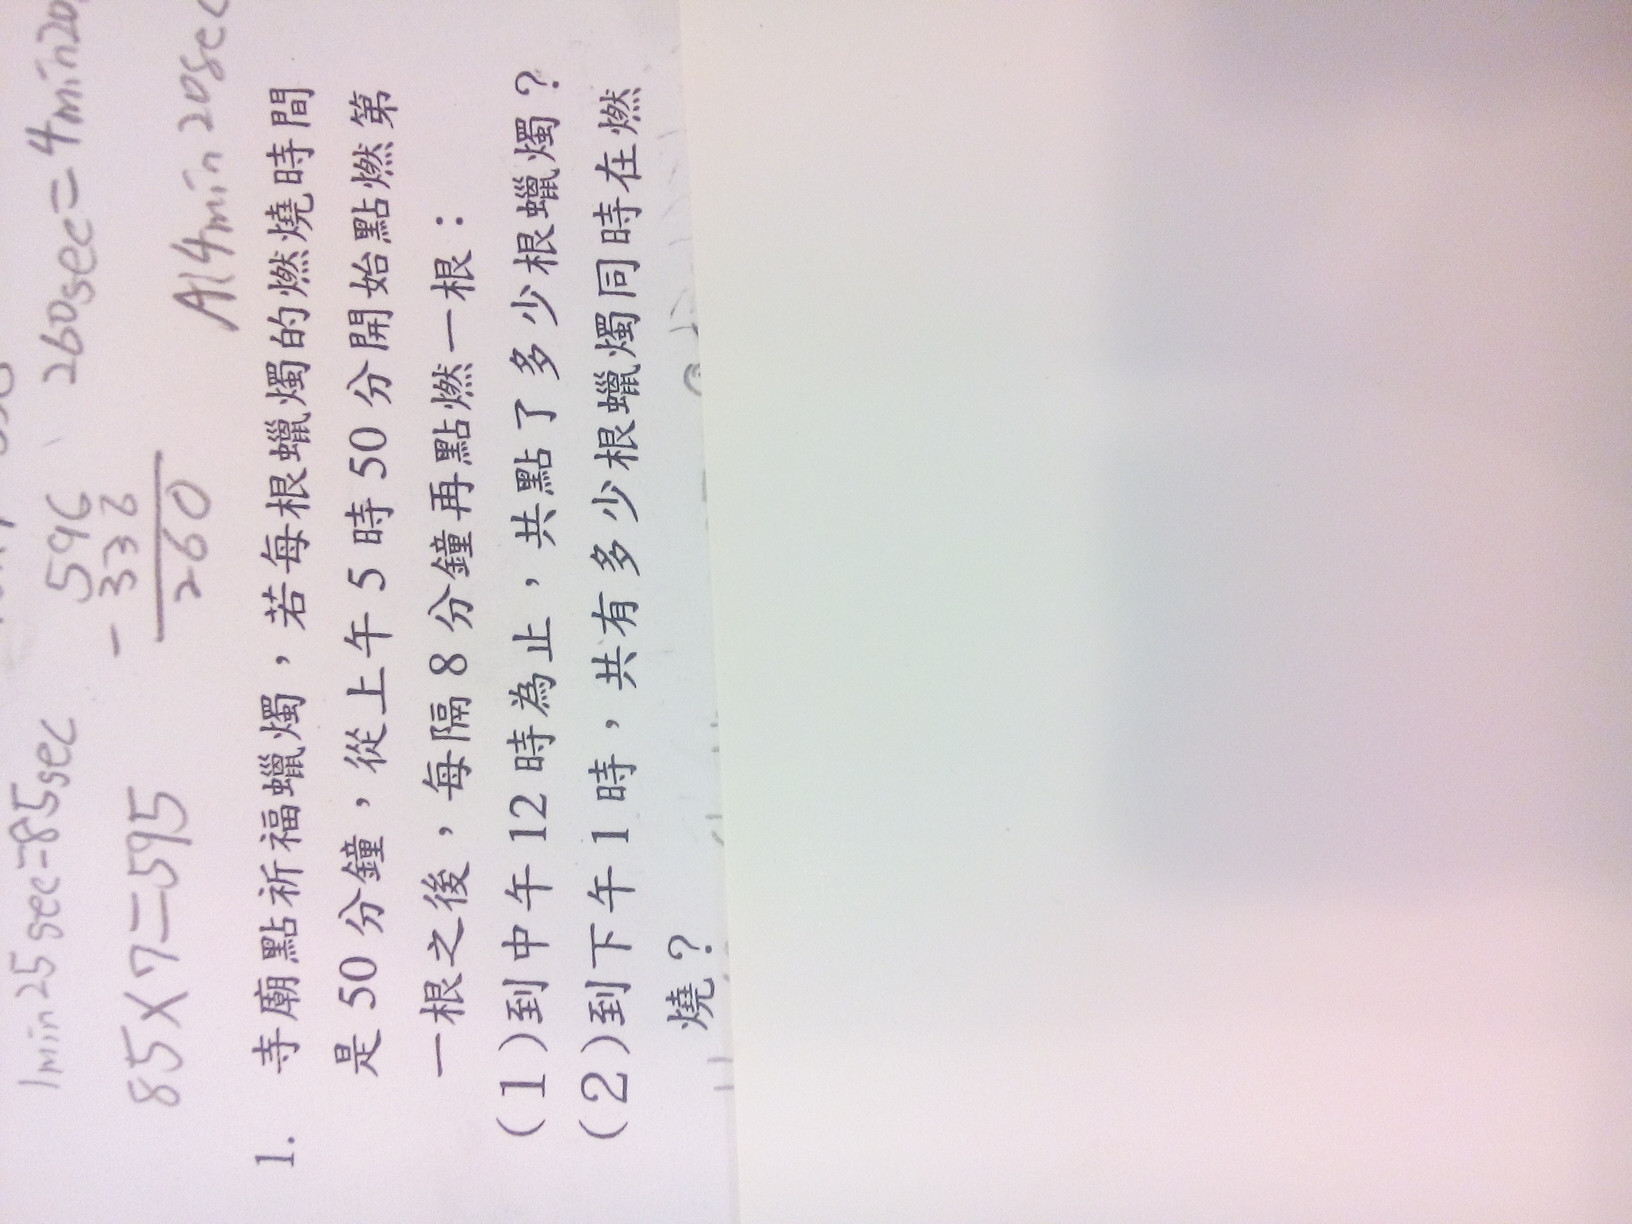 1min25sec=85sec
596
260sec=4min20
-336
85×7=595
260
A:4min20sec
1. 寺廟點祈福蠟燭，若每根蠟燭的燃燒時間
是50分鐘，從上午5時50分開始點燃第
一根之後，每隔8分鐘再點燃一根：
(1)到中午12時為止，共點了多少根蠟燭？
(2)到下午1時，共有多少根蠟燭同時在燃
燒？